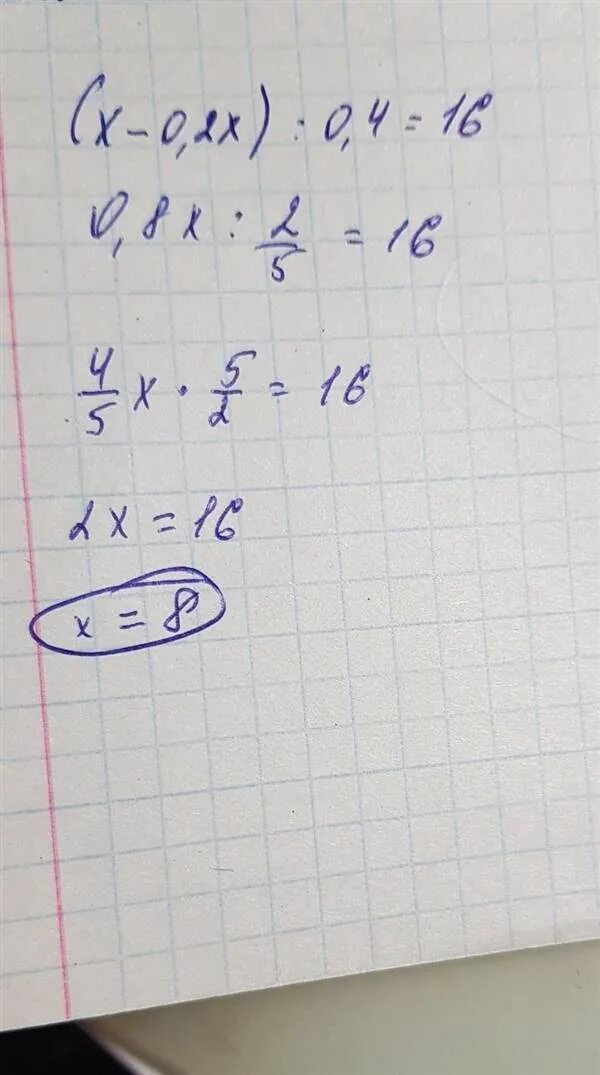 (x - 0,2x) : 0,4 = 16
0,8x : 2/5 = 16
4/5 x · 5/2 = 16
2x = 16
x = 8